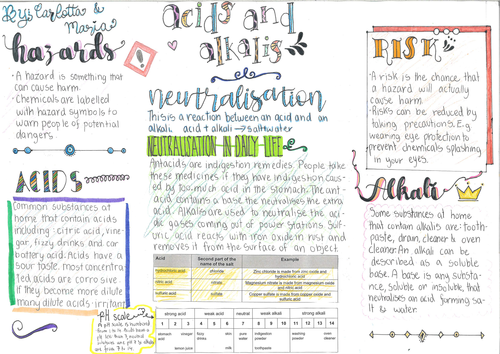 By: Carlotta &
Maria
hazards
· A hazard is something that
can cause harm.
· Chemicals are labelled
with hazard symbols to
warn people of potential
dangers.
acids and
alkalis
neutralisation
This is a reaction between an acid and an
alkali. acid + alkali → salt + water
NEUTRALISATION IN DAILY LIFE
Antacids are indigestion remedies. People take
these medicines if they have indigestion caus-
ed by too much acid in the stomach. The ant-
acid contains a base the neutralises the extra
acid. Alkalis are used to neutralise the aci-
dic gases coming out of power stations. Sulf-
uric acid reacts with iron oxide in rust and
removes it from the surface of an object.
RISK
· A risk is the chance that
a hazard will actually
cause harm.
· Risks can be reduced by
taking precautions. E.g
wearing eye protection to
prevent chemicals splashing
in your eyes.
ACIDS
Common substances at
home that contain acids
including: citric acid, vine-
gar, fizzy drinks and car
battery acid. Acids have a
sour taste. most concentra-
ted acids are corrosive
if they become more dilute
many dilute acids irritant
pH scale
Alkali
Some substances at home
that contain alkalis are: tooth-
paste, drain cleaner & oven
cleaner. An alkali can be
described as a soluble
base. A base is any substa-
nce, soluble or insoluble, that
neutralises an acid forming sa-
lt & water.
Acid Second part of the name of the salt Example
hydrochloric acid chloride Zinc chloride is made from zinc oxide and hydrochloric acid
citric acid nitrate Magnesium nitrate is made from magnesium oxide and nitric acid
sulfuric acid sulfate Copper sulfate is made from copper oxide and sulfuric acid
strong acid weak acid neutral weak alkali strong alkali
1 2 3 4 5 6 7 8 9 10 11 12 13 14